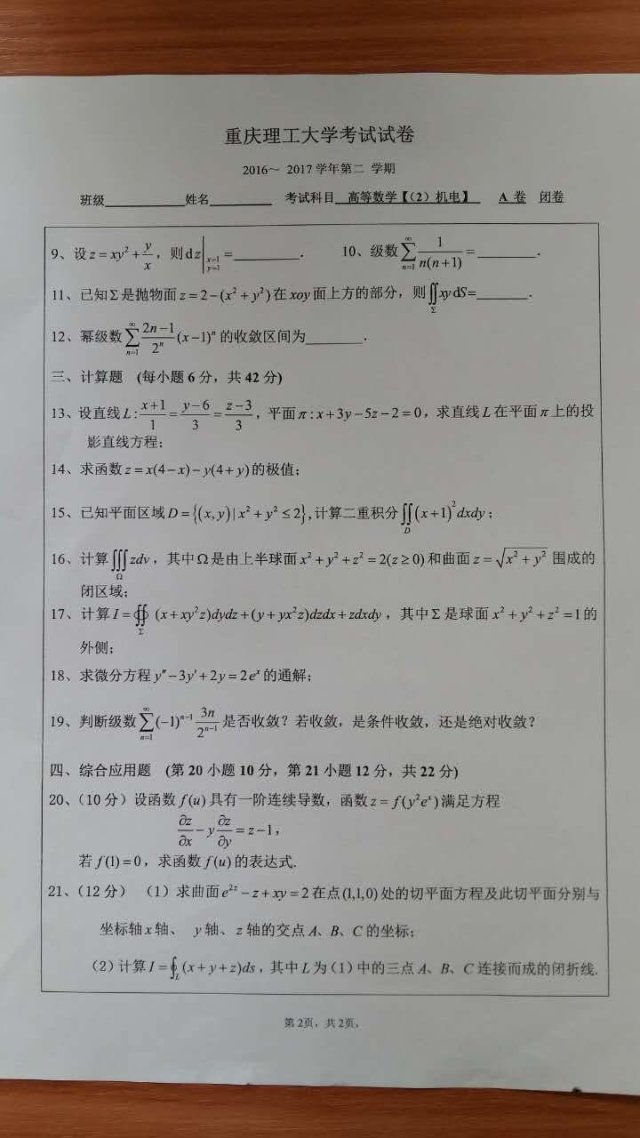 重庆理工大学考试试卷
2016～ 2017 学年第二 学期
班级____________姓名__________ 考试科目 高等数学【（2）机电】 A 卷 闭卷
9、设 z = xy² + y/x，则 dz|x=1 y=1 =__________． 10、级数 ∑n=1^∞ 1/(n(n+1)) =_________．
11、已知Σ是抛物面 z = 2−(x² + y²) 在 xoy 面上方的部分，则∬Σ xy dS=________．
12、幂级数 ∑n=1^∞ (2n−1)/2ⁿ (x−1)ⁿ 的收敛区间为________．
三、计算题 （每小题 6 分，共 42 分）
13、设直线 L: (x+1)/1 = (y−6)/3 = (z−3)/3，平面 π: x+3y−5z−2=0，求直线 L 在平面 π 上的投
影直线方程；
14、求函数 z = x(4−x)−y(4+y) 的极值；
15、已知平面区域 D = {(x, y) | x² + y² ≤ 2}，计算二重积分 ∬D (x+1)² dxdy；
16、计算 ∭Ω zdv，其中Ω是由上半球面 x² + y² + z² = 2(z ≥ 0) 和曲面 z = √(x² + y²) 围成的
闭区域；
17、计算 I = ∯Σ (x+xy²z)dydz+(y+yx²z)dzdx+zdxdy，其中Σ是球面 x² + y² + z² = 1 的
外侧；
18、求微分方程 y″−3y′+2y = 2eˣ 的通解；
19、判断级数 ∑n=1^∞ (−1)ⁿ⁻¹ 3n/2ⁿ⁻¹ 是否收敛？若收敛，是条件收敛，还是绝对收敛？
四、综合应用题 （第 20 小题 10 分，第 21 小题 12 分，共 22 分）
20、（10 分）设函数 f(u) 具有一阶连续导数，函数 z = f(y²eˣ) 满足方程
∂z/∂x − y ∂z/∂y = z−1，
若 f(1) = 0，求函数 f(u) 的表达式．
21、（12 分）（1）求曲面 e²ᶻ − z + xy = 2 在点 (1,1,0) 处的切平面方程及此切平面分别与
坐标轴 x 轴、 y 轴、z 轴的交点 A、B、C 的坐标；
（2）计算 I = ∮L (x+y+z)ds，其中 L 为（1）中的三点 A、B、C 连接而成的闭折线．
第 2页，共 2页。